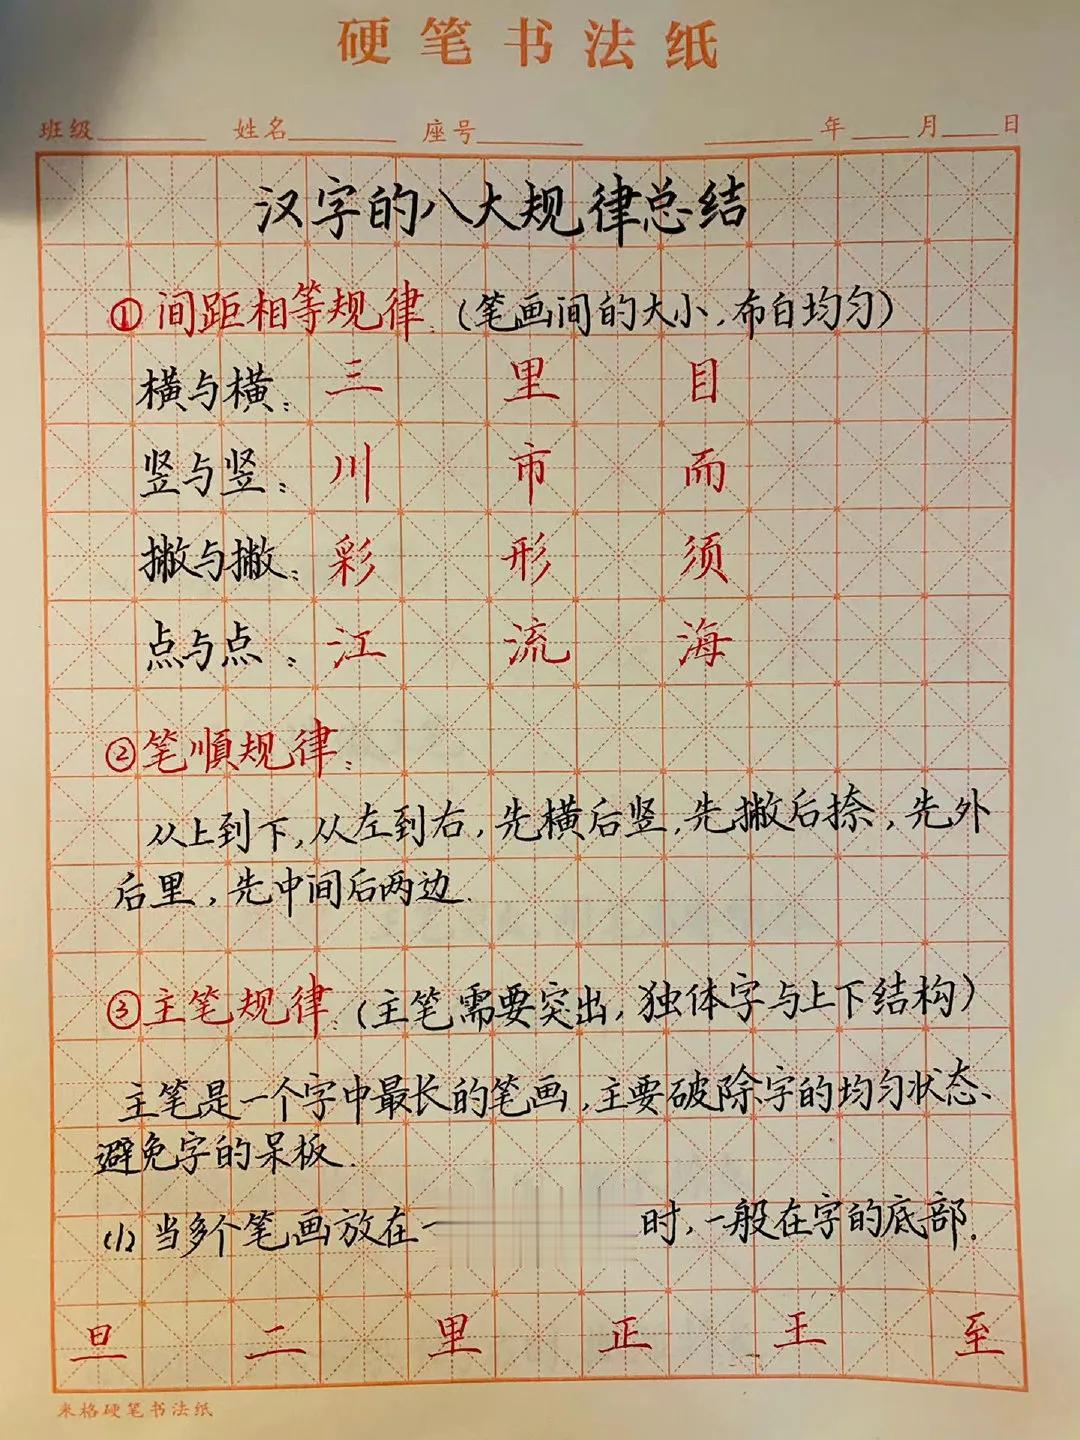 硬笔书法纸
班级 姓名 座号 年 月 日
汉字的八大规律总结
①间距相等规律.(笔画间的大小,布白均匀)
横与横: 三 里 目
竖与竖: 川 市 而
撇与撇: 彩 形 须
点与点: 江 流 海
②笔顺规律:
从上到下,从左到右,先横后竖,先撇后捺,先外
后里,先中间后两边.
③主笔规律:(主笔需要突出,独体字与上下结构)
主笔是一个字中最长的笔画,主要破除字的均匀状态、
避免字的呆板.
(1)当多个笔画放在一 时,一般在字的底部.
旦 二 里 正 王 至
米格硬笔书法纸